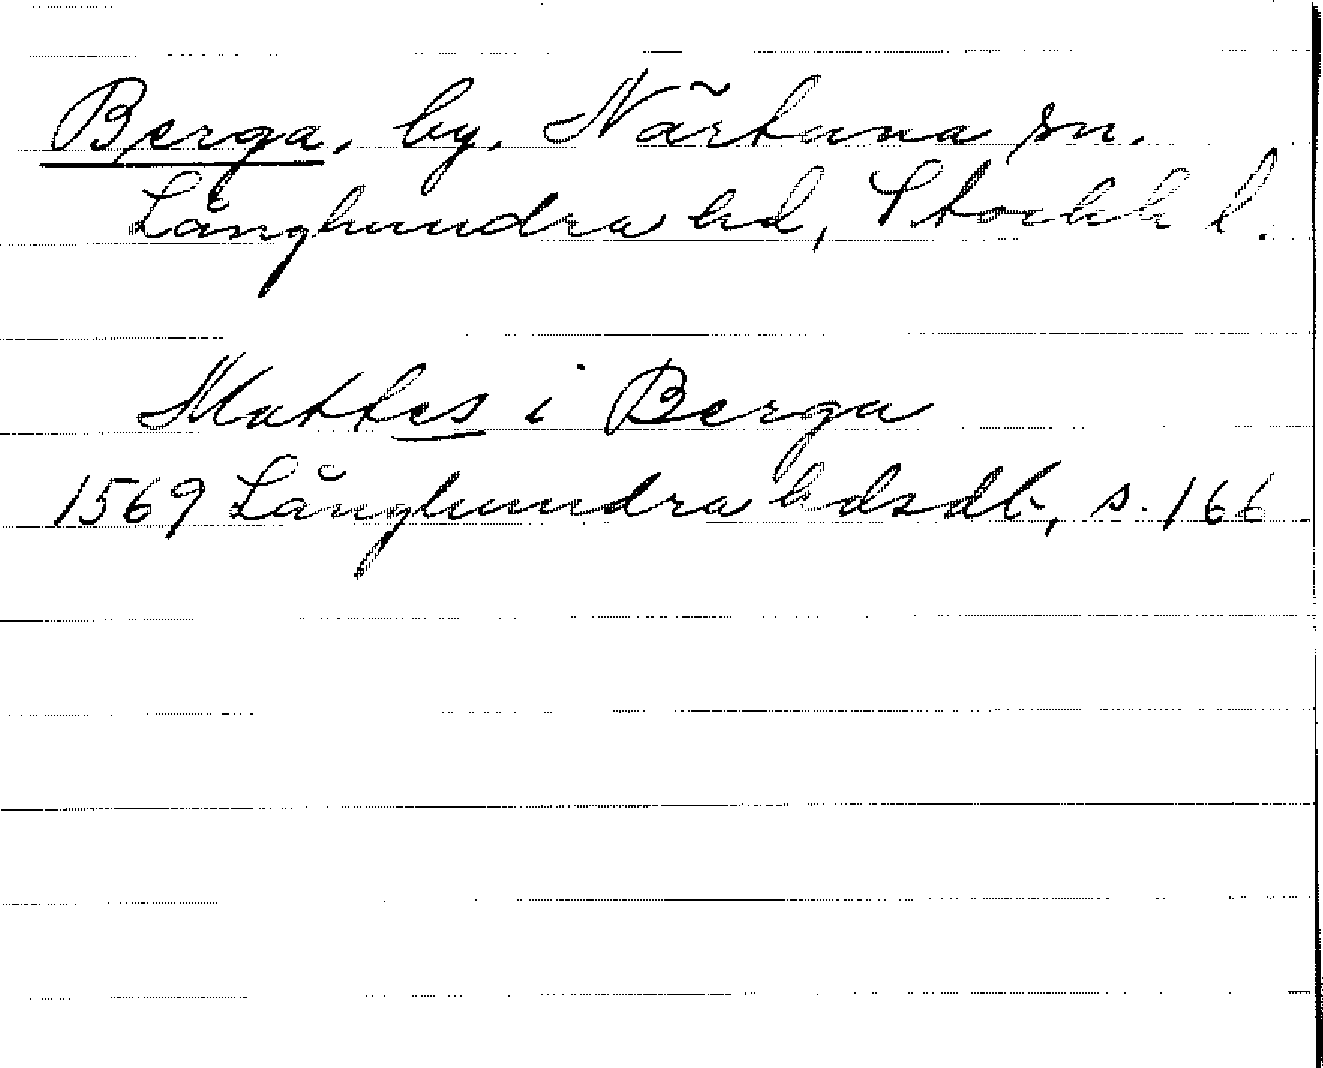 Berga, by, Närtuna sn.
Långhundra hd, Stockh l.
Mattes i Berga
1569 Långhundra hdsdb, s. 166